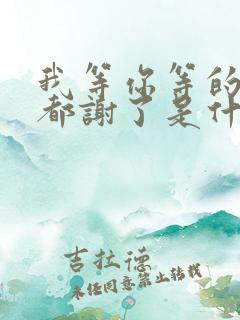 我等你等的
都謝了是什
吉拉德
未经同意禁止转载